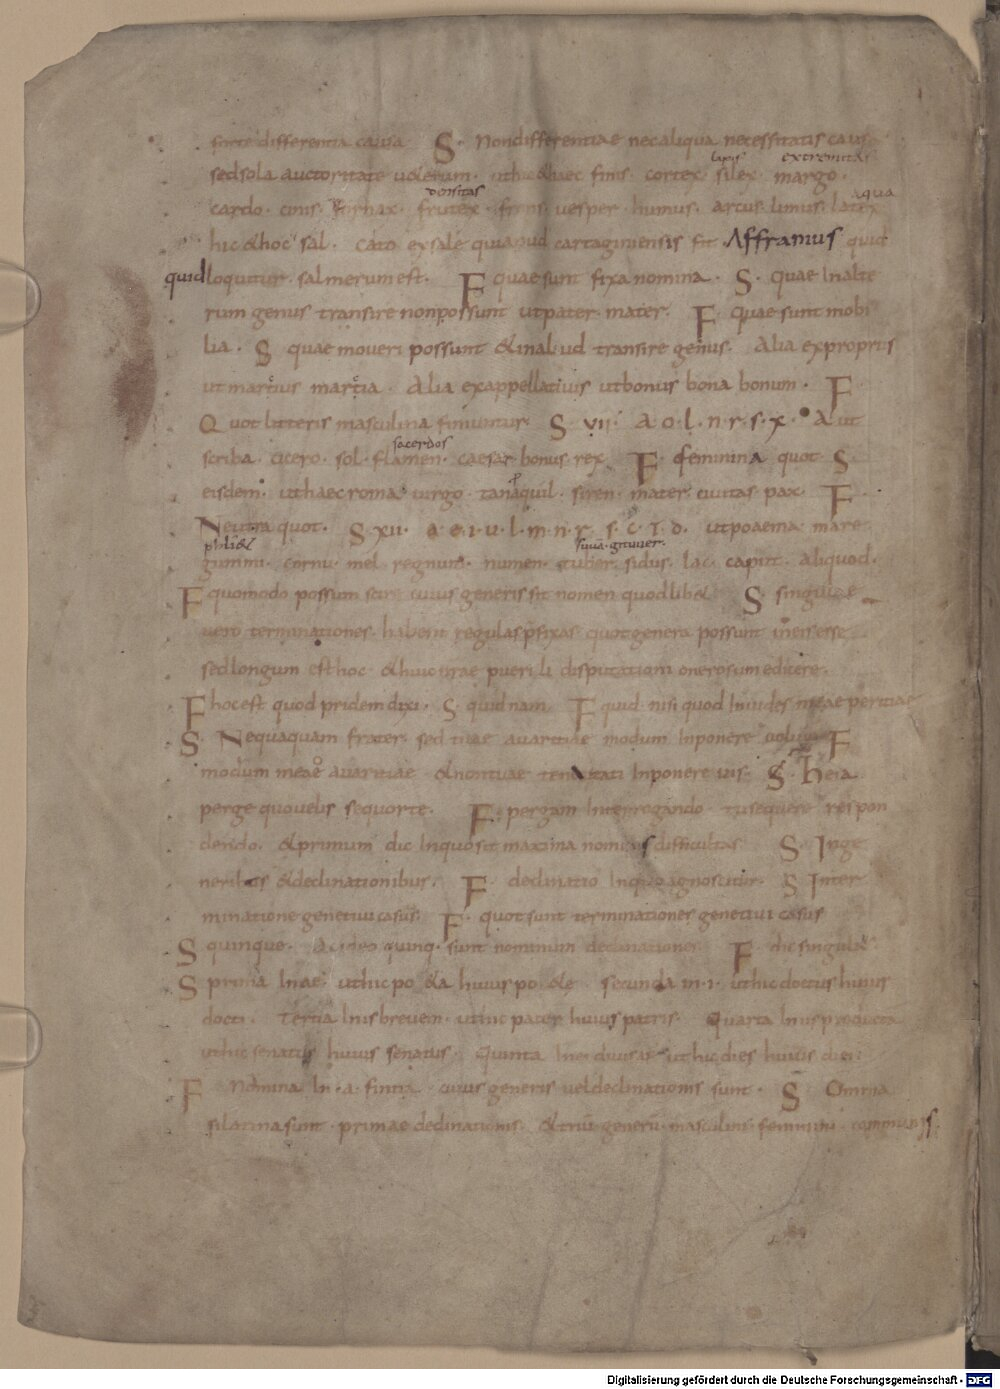 forte differentia causa S. Non differentiae nec aliqua necessitatis causa
lapis extremitas
sed sola auctoritate ueterum. ut hic & haec finis. cortex. silex. margo.
densitas aqua
cardo. cinis. fornax. frutex. frons. uesper. humus. arcus. limus. latex
hic & hoc sal. Cato ex sale qui apud cartaginiensis fit. Afframus quid
quid loquitur. sal merum est. F quae sunt fixa nomina. S. quae In alte
rum genus transire non possunt ut pater. mater. F quae sunt mobi
lia. S quae moueri possunt & in aliud transire genus. Alia ex propriis
ut martius martia. Alia ex appellatiuis ut bonus bona bonum. F
Quot litteris masculina finiuntur. S. VII. a. o. l. n. r. s. x. A ut
sacerdos
scriba. cicero. sol. flamen. caesar. bonus. rex. F. feminina quot. S
eisdem. ut haec roma. uirgo. tanaquil. siren. mater. ciuitas. pax. F
Neutra quot. S XII. a. e. i. u. l. m. n. r. s. c. t. d. ut poaema. mare
gummi. cornu. mel. regnum. numen. tuber. sidus. lac. caput. aliquod.
F quomodo possum scire cuius generis sit nomen quodlib&. S singulae
uero terminationes. habent regulas p̄fixas. quot genera possunt in eis esse
sed longum est hoc. & huic nrae puerili disputationi onerosum edicere.
F hoc est quod pridem dixi. S quidnam F quid. nisi quod Inuides meae peritiae
S Nequaquam frater. sed tuae auaritiae modum Inponere uolui F
modum meae auaritiae. & non tuae tenacitati Inponere uis. S. Heia
perge quo uelis sequor te. F. pergam Interrogando. tu sequere respon
dendo. & primum dic In quo sit maxima nominis difficultas S Inge
neribus & declinationibus. F declinatio In quo agnoscitur. S Inter
minatione genetiui casus. F. quot sunt terminationes genetiui casus
S quinque. Ac ideo quinq. sunt nominum declinationes F dic singulas.
S prima In ae. ut hic po&a huius po&ę. secunda in .i. ut hic doctus huius
docti. Tertia In is breuem. ut hic pater huius patris. Quarta In us producta
ut hic senatus huius senatus. Quinta In ei diuisas ut hic dies huius diei.
F Nomina In .a. finita. cuius generis uel declinationis sunt. S Omnia
si latina sunt. primae declinationis. & trium generum. masculini. feminini. communis.
Digitalisierung gefördert durch die Deutsche Forschungsgemeinschaft - DFG